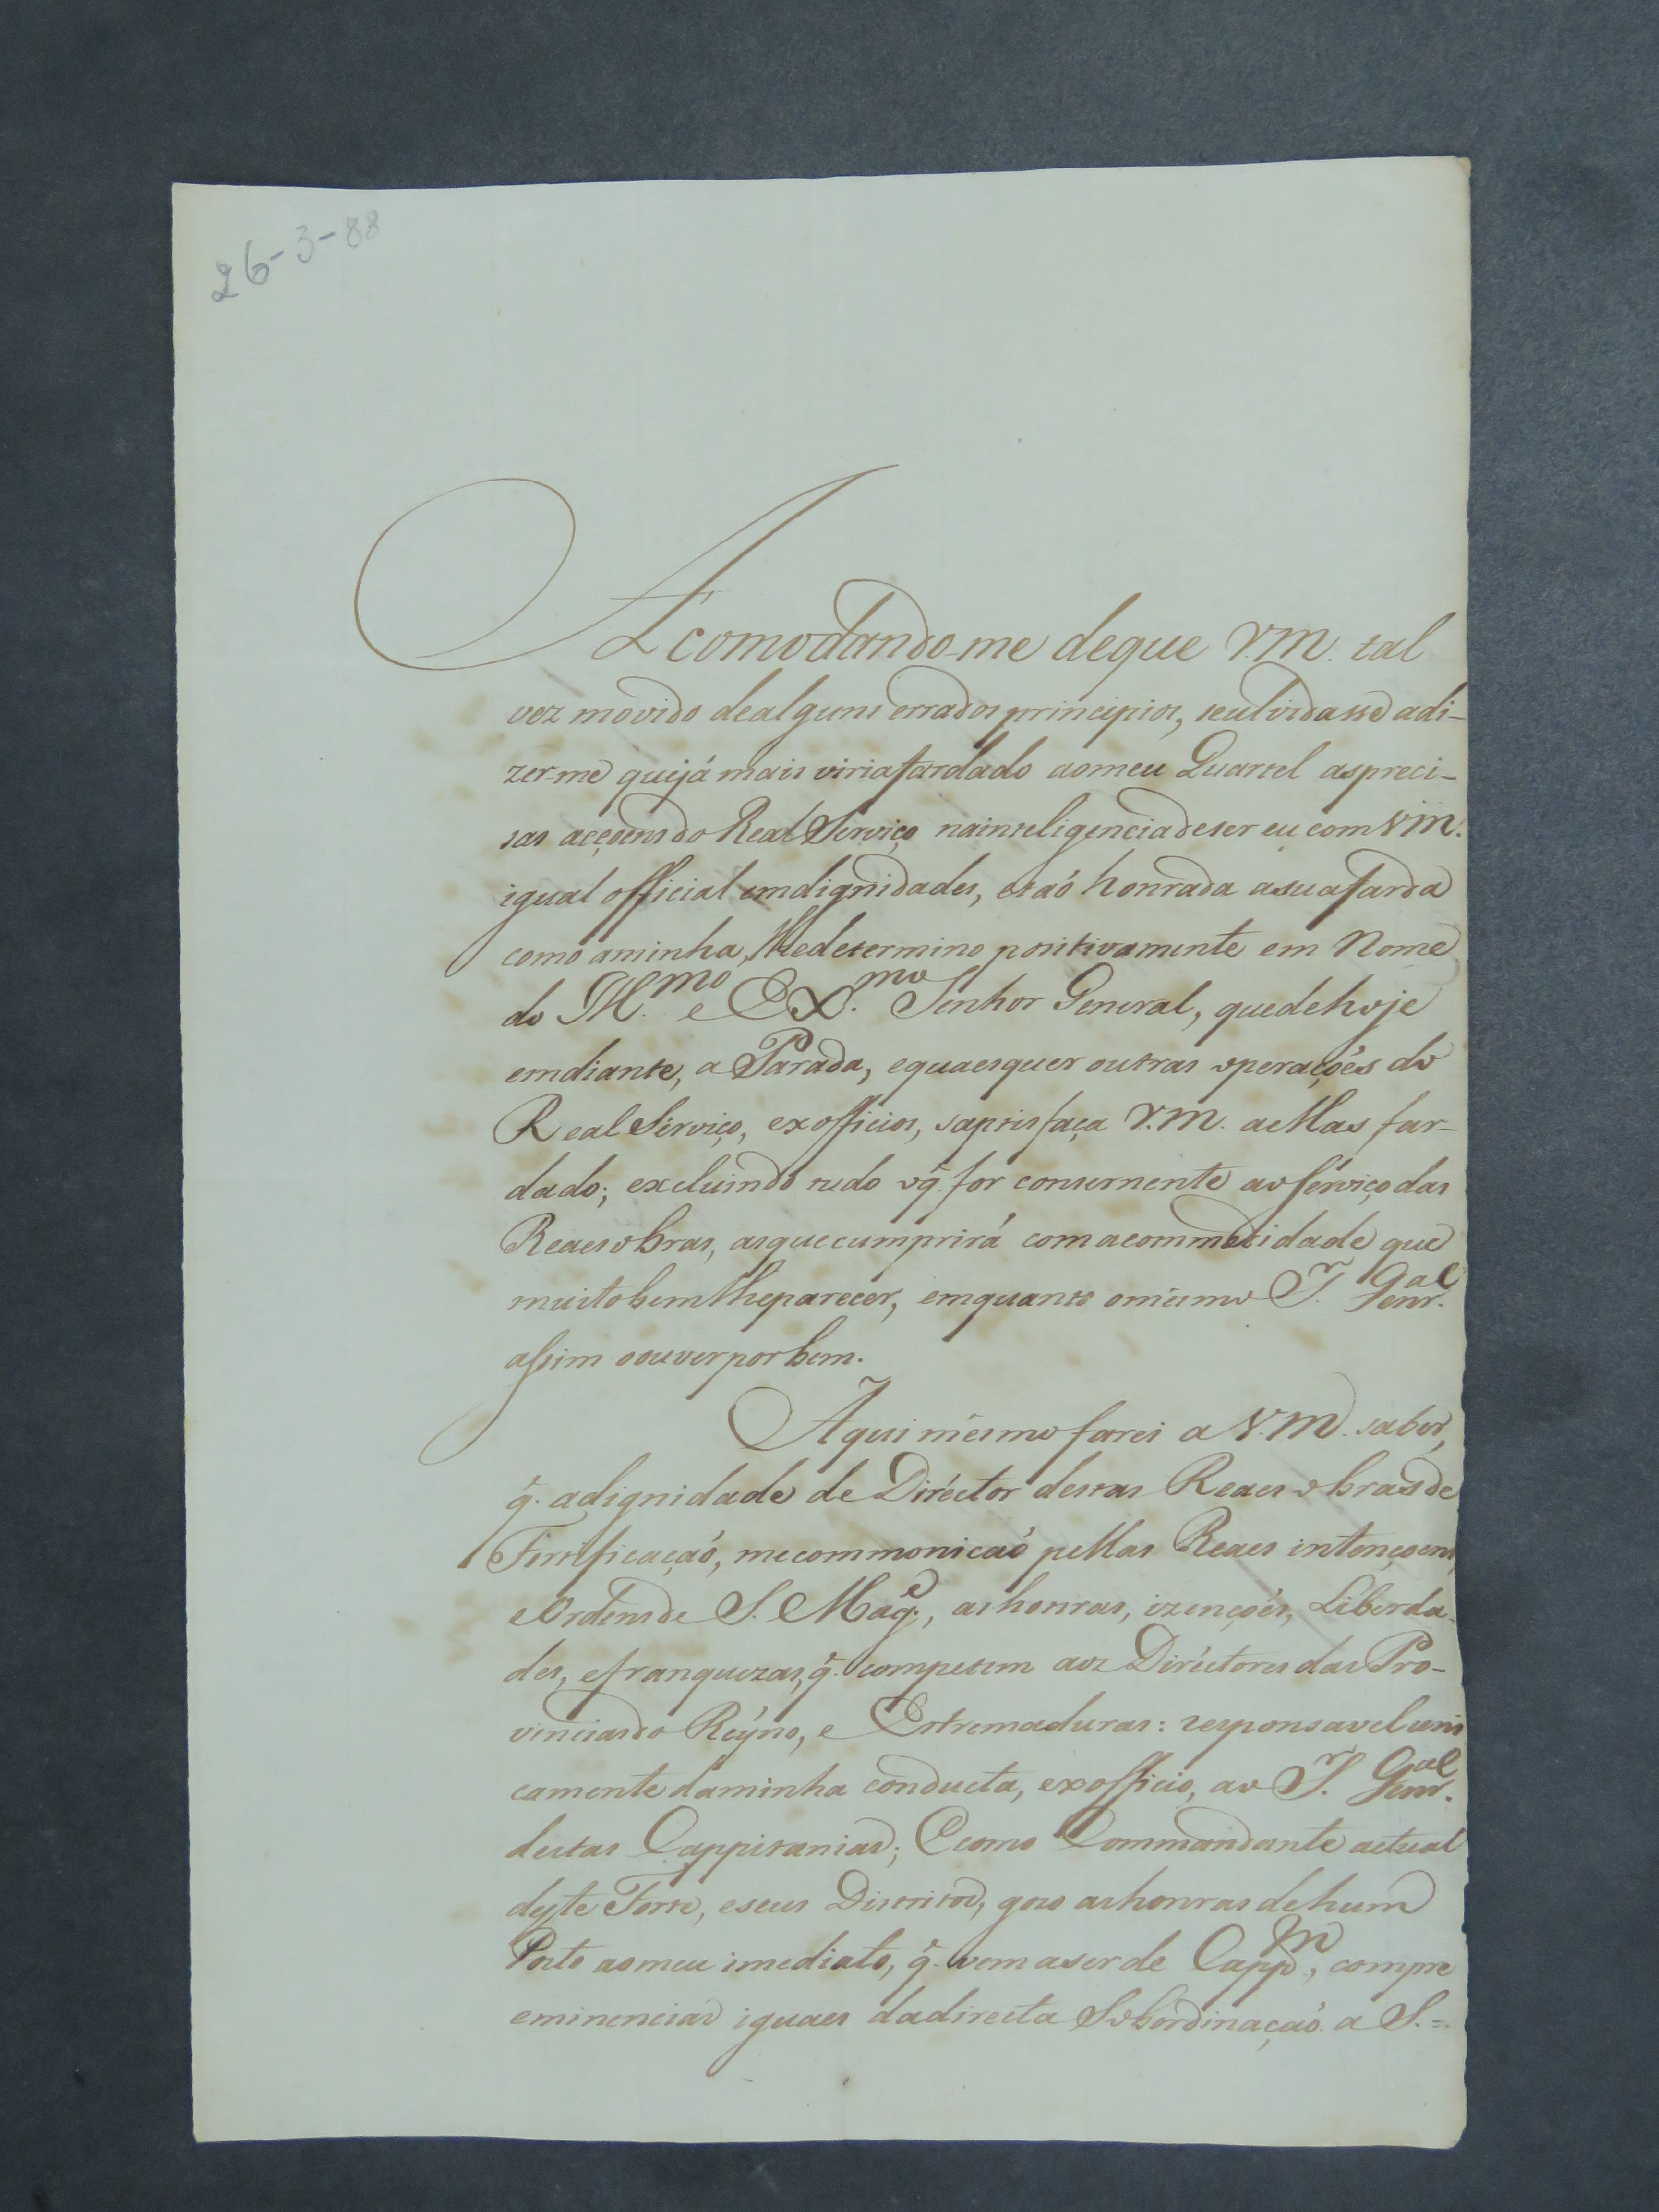 26-3-88
Acomodando-me deque V.M. tal
vez movido dealguns errados principios, seulvidasse adi-
zer-me quejá mais viriafardado aomeu Quartel aspreci-
sas acçoens do Real Serviço nainteligencia deser eu com V.M.
igual official emdignidades, etaó honrada asuafarda
como aminha, lhedetermino positivamente em Nome
do Ill.mo e Ex.mo Senhor General, quedehoje
emdiante, a Parada, equaesquer outras operaçoẽs do
Real Serviço, exofficios, saptisfaça V.M. aellas far-
dado; excluindo tudo oq̃. for consernente ao Serviço das
Reaes obras, asquecumprirá comacommedidade que
muitobemlheparecer, emquanto omesmo S.r Gen.al
assim oouver por bem.
Aqui mesmo farei a V.M. saber,
q̃. adignidade de Diréctor destas Reaes obras de
Fortificaçaó, mecommonicaó pellas Reaes intençoens,
e Ordens de S. Mag.e, as honras, izençoẽs, Liberda-
des, efranquezas, q̃. competem aos Diréctores das Pro-
venciasdo Reyno, e Estremaduras: responsavel uni
camente daminha conducta, exofficio, ao S.r Gen.al
destas Cappitanias; Ecomo Commandante actual
deste Forte, eseus Distritos, gozo ashonras dehum
Posto aomeu imediato, q̃. vem aser de Capp.m, compre
eminencias iguaes dadirecta Sobordinaçaó a S.=